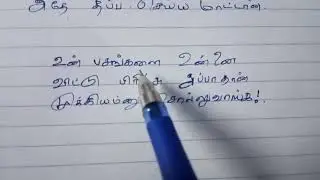 அதே தப்ப செய்ய மாட்டான்.
உன் பசங்களை உன்னை
விட்டு பிரிச்சு அப்பாதான்
முக்கியம்னு சொல்லுவாங்க!